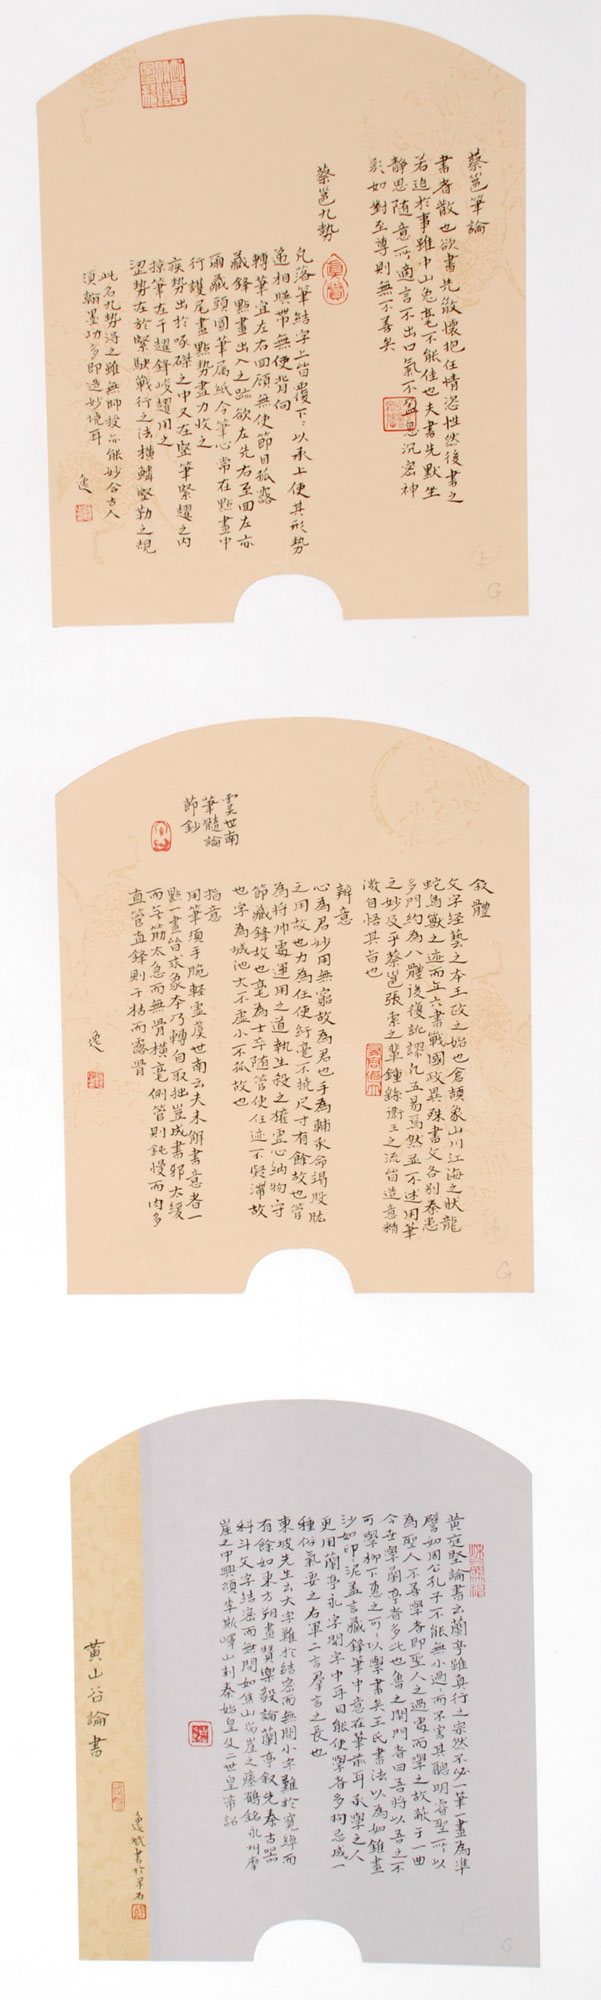 蔡邕筆論
書者散也欲書先散懷抱任情恣性然後書之
若迫於事雖中山兔毫不能佳也夫書先默坐
靜思隨意所適言不出口氣不盈息沉密神
彩如對至尊則無不善矣
蔡邕九勢
凡落筆結字上皆覆下下以承上使其形勢
遞相映帶無使背
轉筆宜左右回顧無使節目孤露
藏鋒點畫出入之跡欲左先右至回左亦
爾藏頭圓筆屬紙令筆心常在點畫中
行護尾畫點勢盡力收之
疾勢出於啄磔之中又在竪筆緊趯之內
掠筆在于趲鋒峻趯用之
澀勢在於緊駃戰行之法橫鱗竪勒之規
此名九勢得之雖無師授亦能妙合古人
須翰墨功多即造妙境耳
逸
虞世南
筆髓論
節鈔
敘體
文字經藝之本王政之始也倉頡象山川江海之狀龍
蛇鳥獸之迹而立六書戰國政異殊書文各別秦患
多門約為八體後復訛謬凡五易焉然並不述用筆
之妙及乎蔡邕張索之輩鍾繇衛王之流皆造意精
微自悟其旨也
辨意
心為君妙用無窮故為君也手為輔承命竭股肱
之用故也力為任使纖毫不撓尺寸有餘故也管
為將帥處運用之道執生殺之權虛心納物守
節藏鋒故也毫為士卒隨管使任迹不凝滯故
也字為城池大不虛小不孤故也
指意
用筆須手腕輕虛虞世南云夫未解書意者一
點一畫皆求象本乃轉自取拙豈成書邪太緩
而無筋太急而無骨橫毫側管則鈍慢而肉多
直管直鋒則干枯而露骨
逸
黃庭堅論書云蘭亭雖真行之宗然不必一筆一畫為準
譬如周公孔子不能無小過過而不害其聰明睿聖所以
為聖人不善學者即聖人之過處而學之故蔽于一曲
今世學蘭亭者多此也魯之閉門者曰吾將以吾之不
可學柳下惠之可可以學書矣王氏書法以為如錐畫
沙如印印泥蓋言藏鋒筆中意在筆前耳承學之人
更用蘭亭永字開字中耳目能使學者多拘忌成一
種俗氣要之右軍二言群言之長也
東坡先生云大字難於結密而無間小字難於寬綽而
有餘如東方朔畫贊樂毅論蘭亭敘先秦古器
科斗文字結密而無間如焦山崩崖之瘞鶴銘永州摩
崖之中興頌李斯嶧山刻秦始皇及二世皇帝詔
黃山谷論書